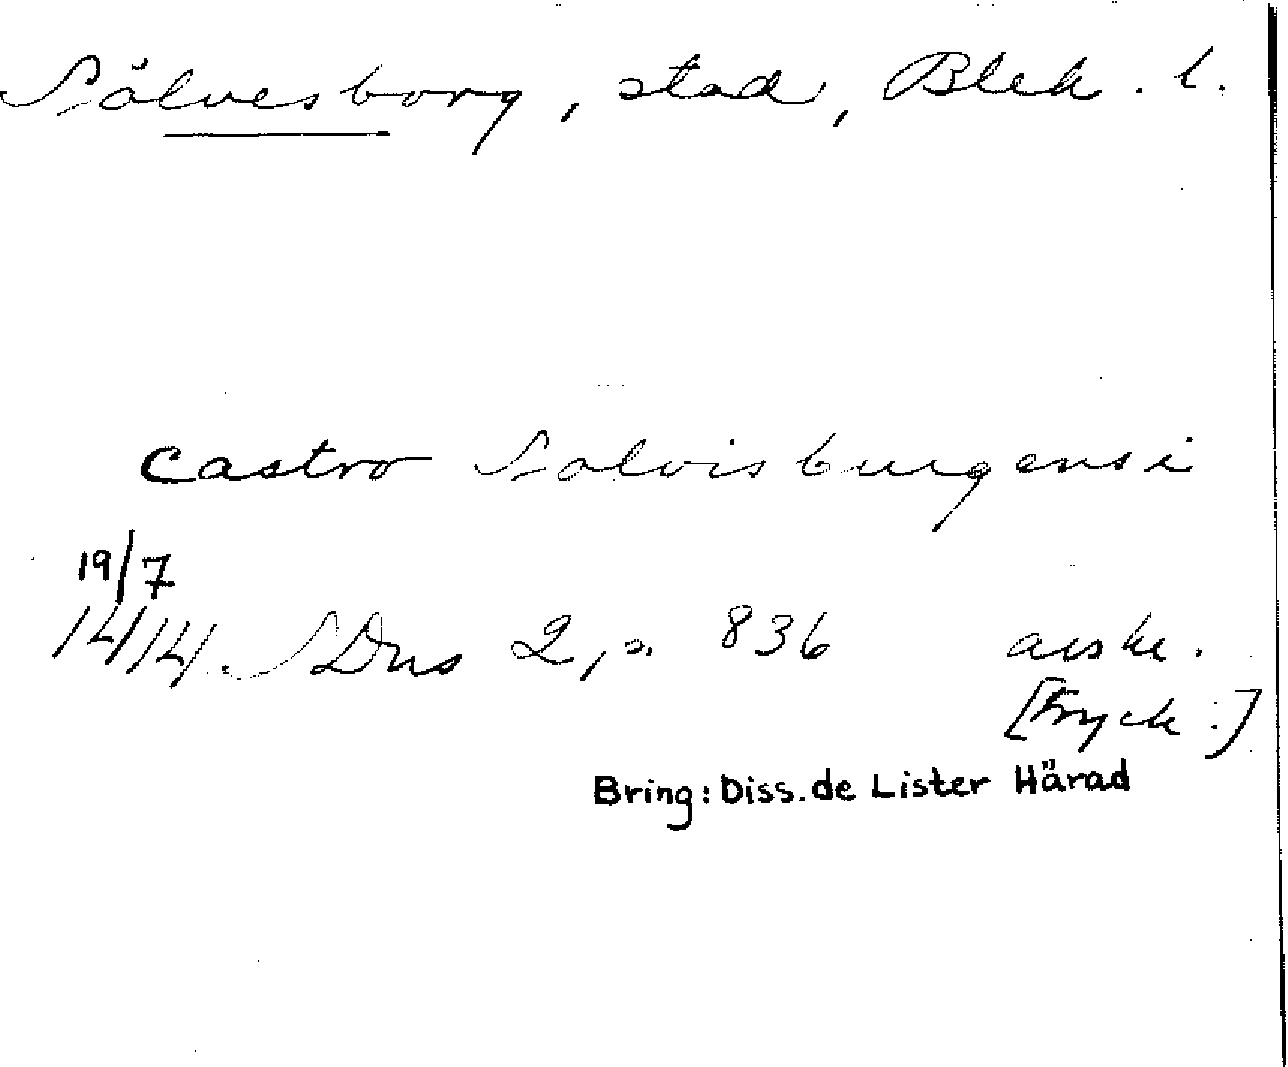 Sölvesborg, stad, Blek. l.
castro Solvisburgensi
19/7
1414. SDns 2, s. 836 avskr.
[tryck:]
Bring: Diss. de Lister Härad